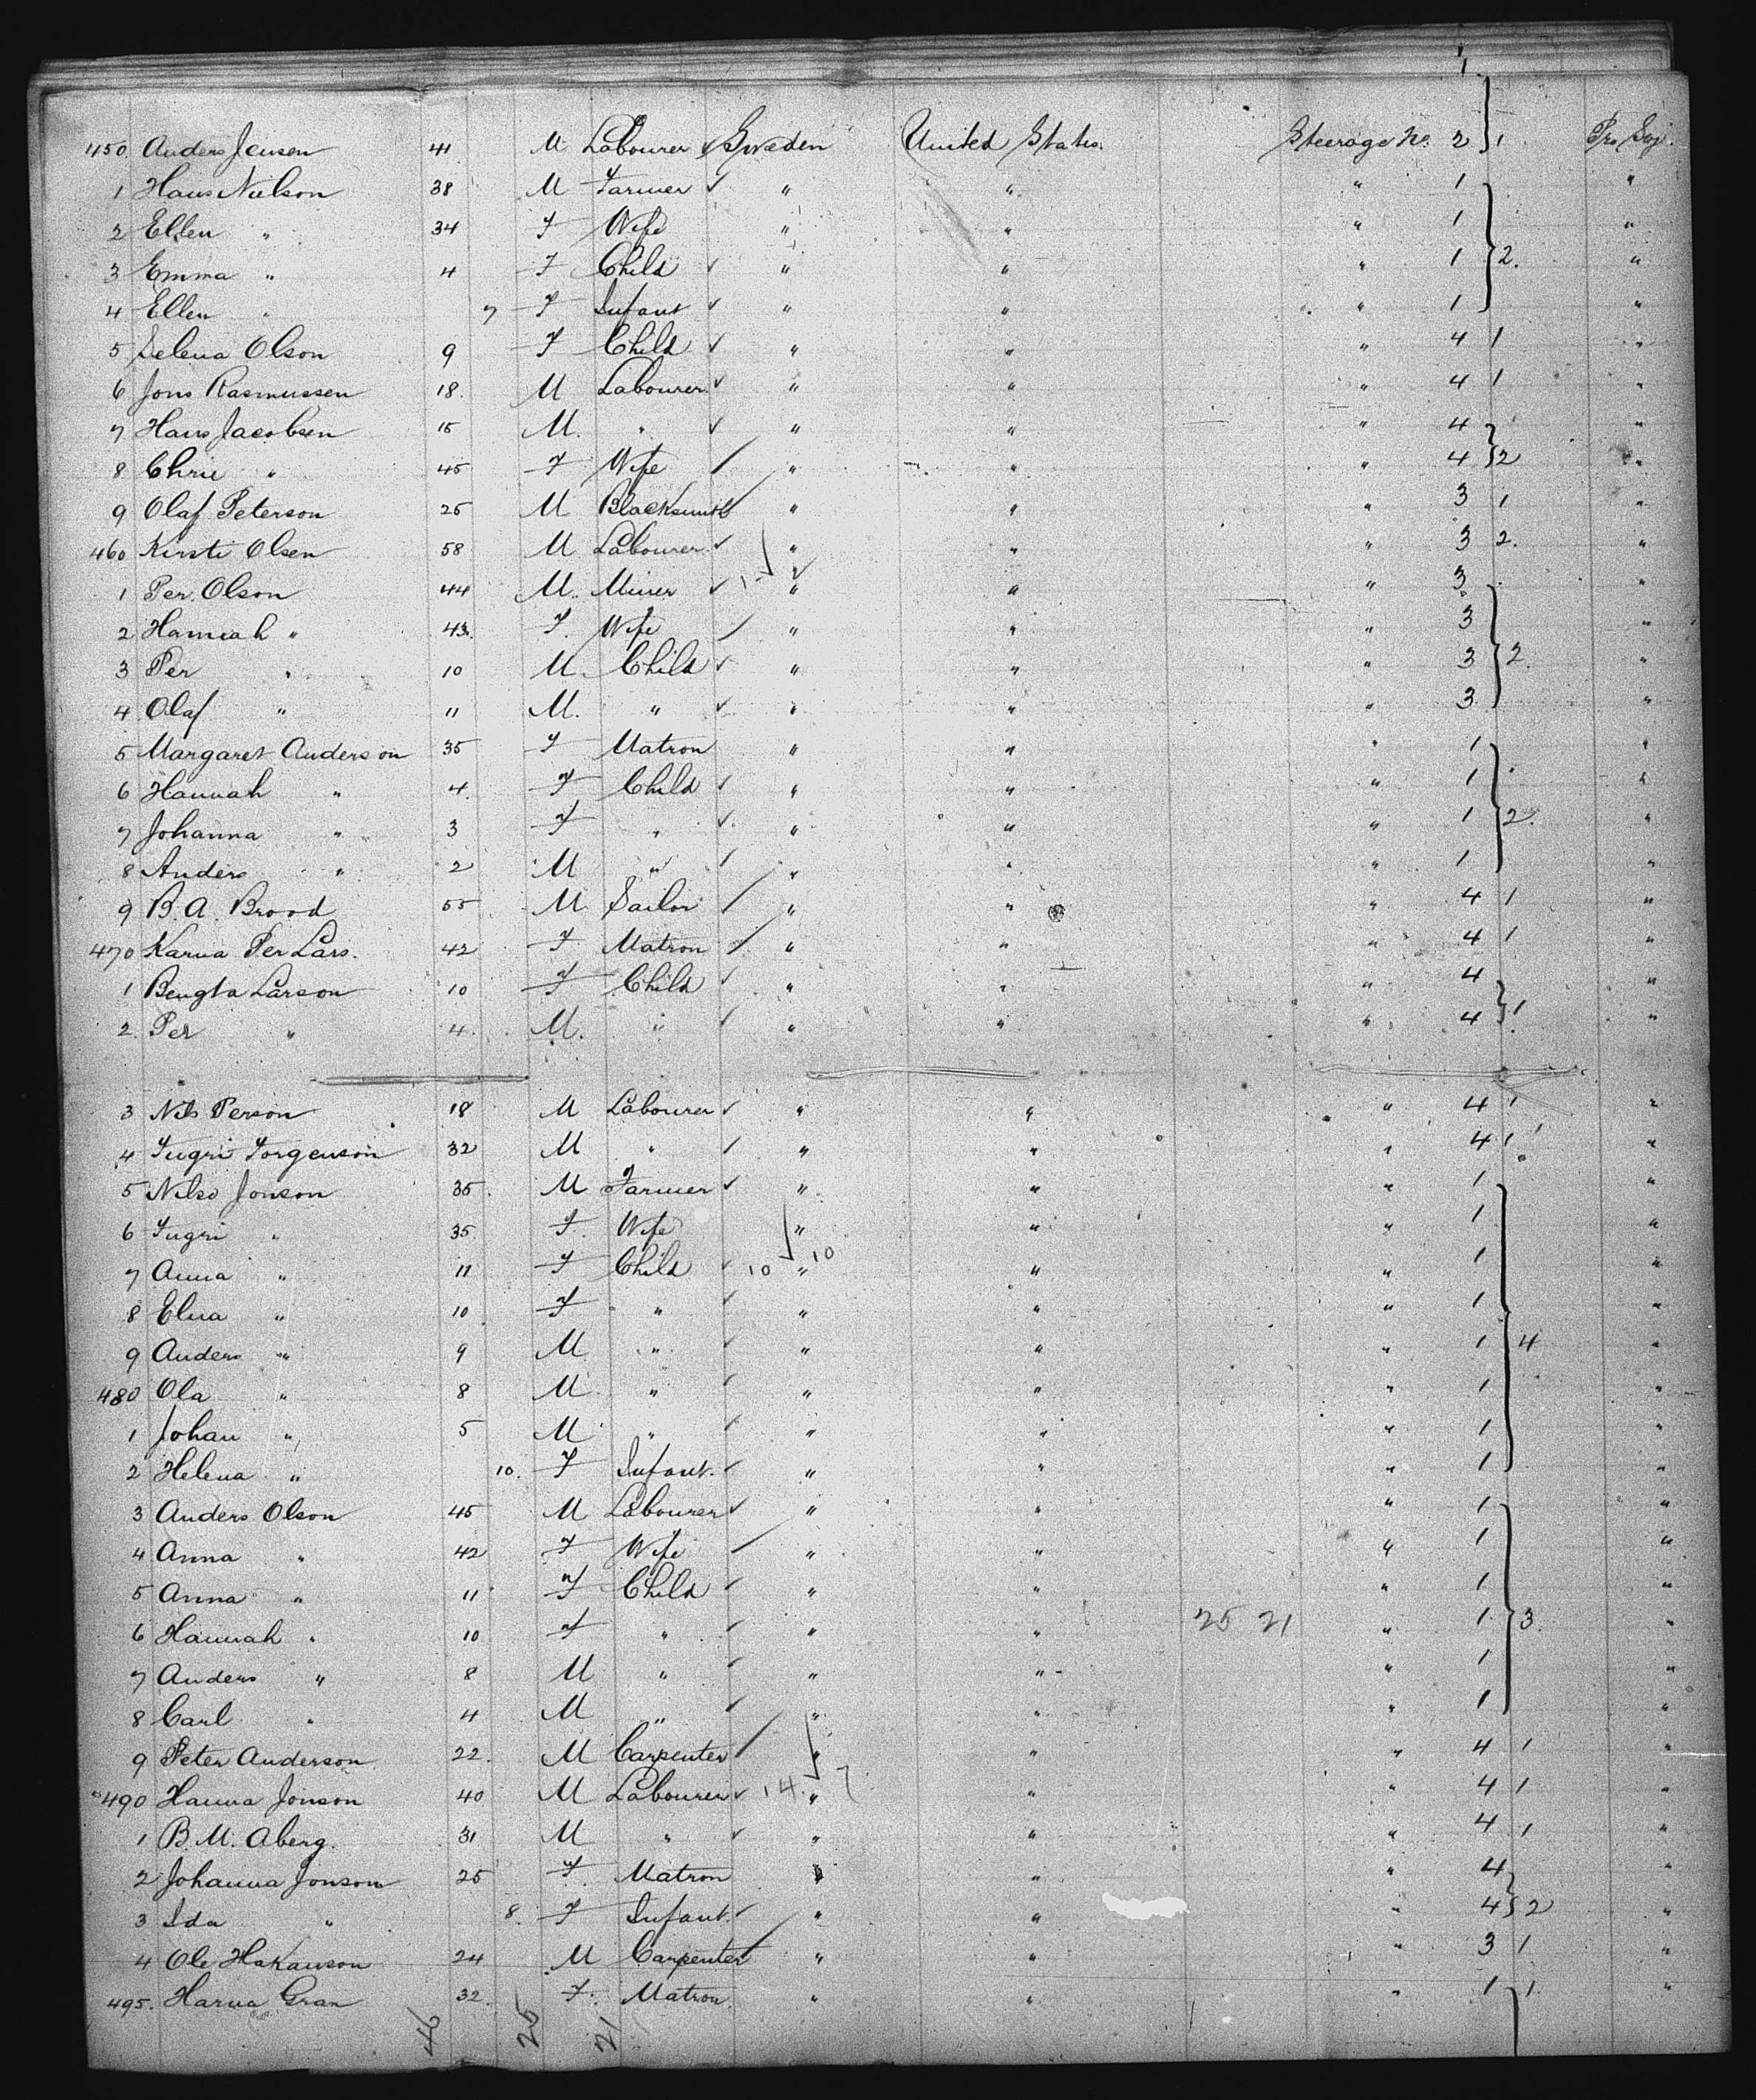 450. Anders Jensen 41 M Labourer ✓ Sweden United States. Steerage No. 2 } 1 Pro Soj.
1 Hans Nielson 38 M Farmer ✓ " " " 1 "
2 Ellen " 34 F Wife " " " 1 "
3 Emma " 4 F Child ✓ " " " 1 } 2. "
4 Ellen " 7 F Infant ✓ " " " 1 "
5 Selena Olson 9 F Child ✓ " " " 4 1 "
6 Jons Rasmussen 18. M Labourer ✓ " " " 4 1 "
7 Hans Jacobsen 15 M. " ✓ " " " 4 "
8 Chrie " 45 F Wife / " " " 4 } 2 "
9 Olaf Peterson 25 M Blacksmith " " " 3 1 "
460 Kirsti Olsen 58 M Labourer ✓ " " " 3 2. "
1 Per. Olson 44 M. Miner ✓ 1 " " " 3 "
2 Hannah " 43. F. Wife / " " " 3 "
3 Per " 10 M. Child ✓ " " " 3 } 2. "
4 Olaf " 11 M. " ✓ " " " 3 "
5 Margaret Anderson 35 F Matron " " " 1 "
6 Hannah " 4. F Child ✓ " " " 1 "
7 Johanna " 3 F " ✓ " " " 1 } 2. "
8 Anders " 2 M " / " " " 1 "
9 B. A. Brood 55 M Sailor / " " " 4 1 "
470 Karna Per Lars. 42 F Matron / " " " 4 1 "
1 Bengta Larson 10 F Child ✓ " " " 4 "
2. Per " 4. M. " / " " " 4 } 1. "
3 Nils Person 18 M Labourer ✓ " " " 4 1 "
4 Yugri Yorgenson 32 M " / " " " 4 1 "
5 Nilso Jonson 35. M Farmer ✓ " " " 1 "
6 Yugri " 35 F. Wife " " " 1 "
7 Anna " 11 F Child ✓ 10 " 10 " " 1 "
8 Elna " 10 F " ✓ " " " 1 "
9 Anders " 9 M " ✓ " " " 1 } 4 "
480 Ola " 8 M " / " " " 1 "
1 Johan " 5 M " / " " " 1 "
2 Helena " 10. F Infant. ✓ " " " 1 "
3 Anders Olson 45 M Labourer ✓ " " " 1 "
4 Anna " 42 F Wife / " " " 1 "
5 Anna " 11 F Child ✓ " " " 1 "
6 Hannah " 10 F " ✓ " " 25 21 " 1 } 3. "
7 Anders " 8 M " ✓ " " " 1 "
8 Carl " 4 M " / " " " 1 "
9 Peter Anderson 22. M Carpenter / " " " 4 1 "
490 Hanna Jonson 40 M Labourer ✓ 14. " 7 " " 4 1 "
1 B. M. Aberg. 31 M " ✓ " " " 4 1 "
2 Johanna Jonson 25 F. Matron " " " 4 "
3 Ida " 8. F Infant. ✓ " " " 4 } 2 "
4 Ole Hakanson 24 M Carpenter / " " " 3 1 "
495. Harna Gran 32. F. Matron. " " " 1 1. "
46 25 21